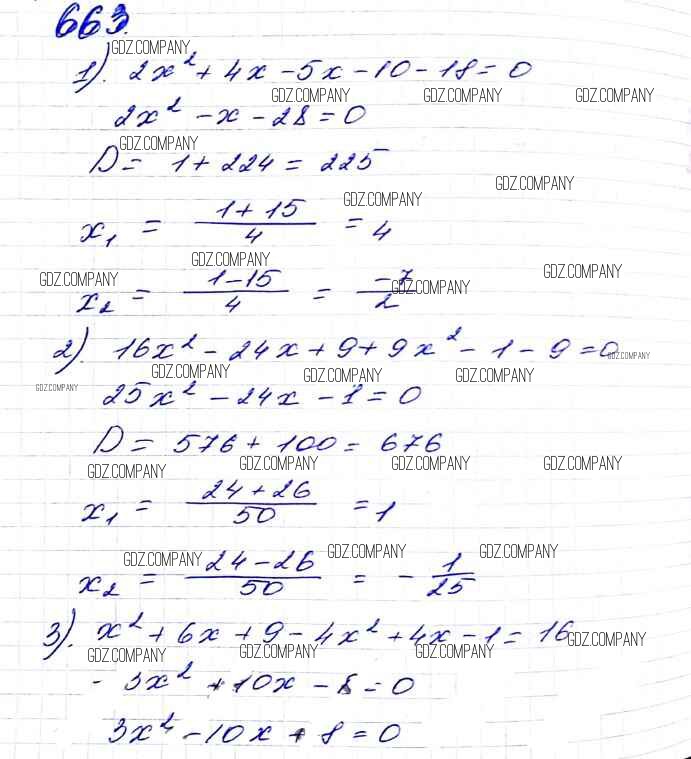 663.
GDZ.COMPANY
1). 2x² + 4x - 5x - 10 - 18 = 0
GDZ.COMPANY GDZ.COMPANY GDZ.COMPANY
2x² - x - 28 = 0
GDZ.COMPANY
D = 1 + 224 = 225
GDZ.COMPANY
GDZ.COMPANY
x₁ = (1 + 15)/4 = 4
GDZ.COMPANY
GDZ.COMPANY GDZ.COMPANY GDZ.COMPANY
x₂ = (1 - 15)/4 = -7/2
2). 16x² - 24x + 9 + 9x² - 1 - 9 = 0
GDZ.COMPANY
GDZ.COMPANY GDZ.COMPANY GDZ.COMPANY GDZ.COMPANY
25x² - 24x - 1 = 0
D = 576 + 100 = 676
GDZ.COMPANY GDZ.COMPANY GDZ.COMPANY GDZ.COMPANY
x₁ = (24 + 26)/50 = 1
GDZ.COMPANY GDZ.COMPANY GDZ.COMPANY
x₂ = (24 - 26)/50 = - 1/25
3). x² + 6x + 9 - 4x² + 4x - 1 = 16
GDZ.COMPANY
GDZ.COMPANY GDZ.COMPANY GDZ.COMPANY
- 3x² + 10x - 8 = 0
3x² - 10x + 8 = 0